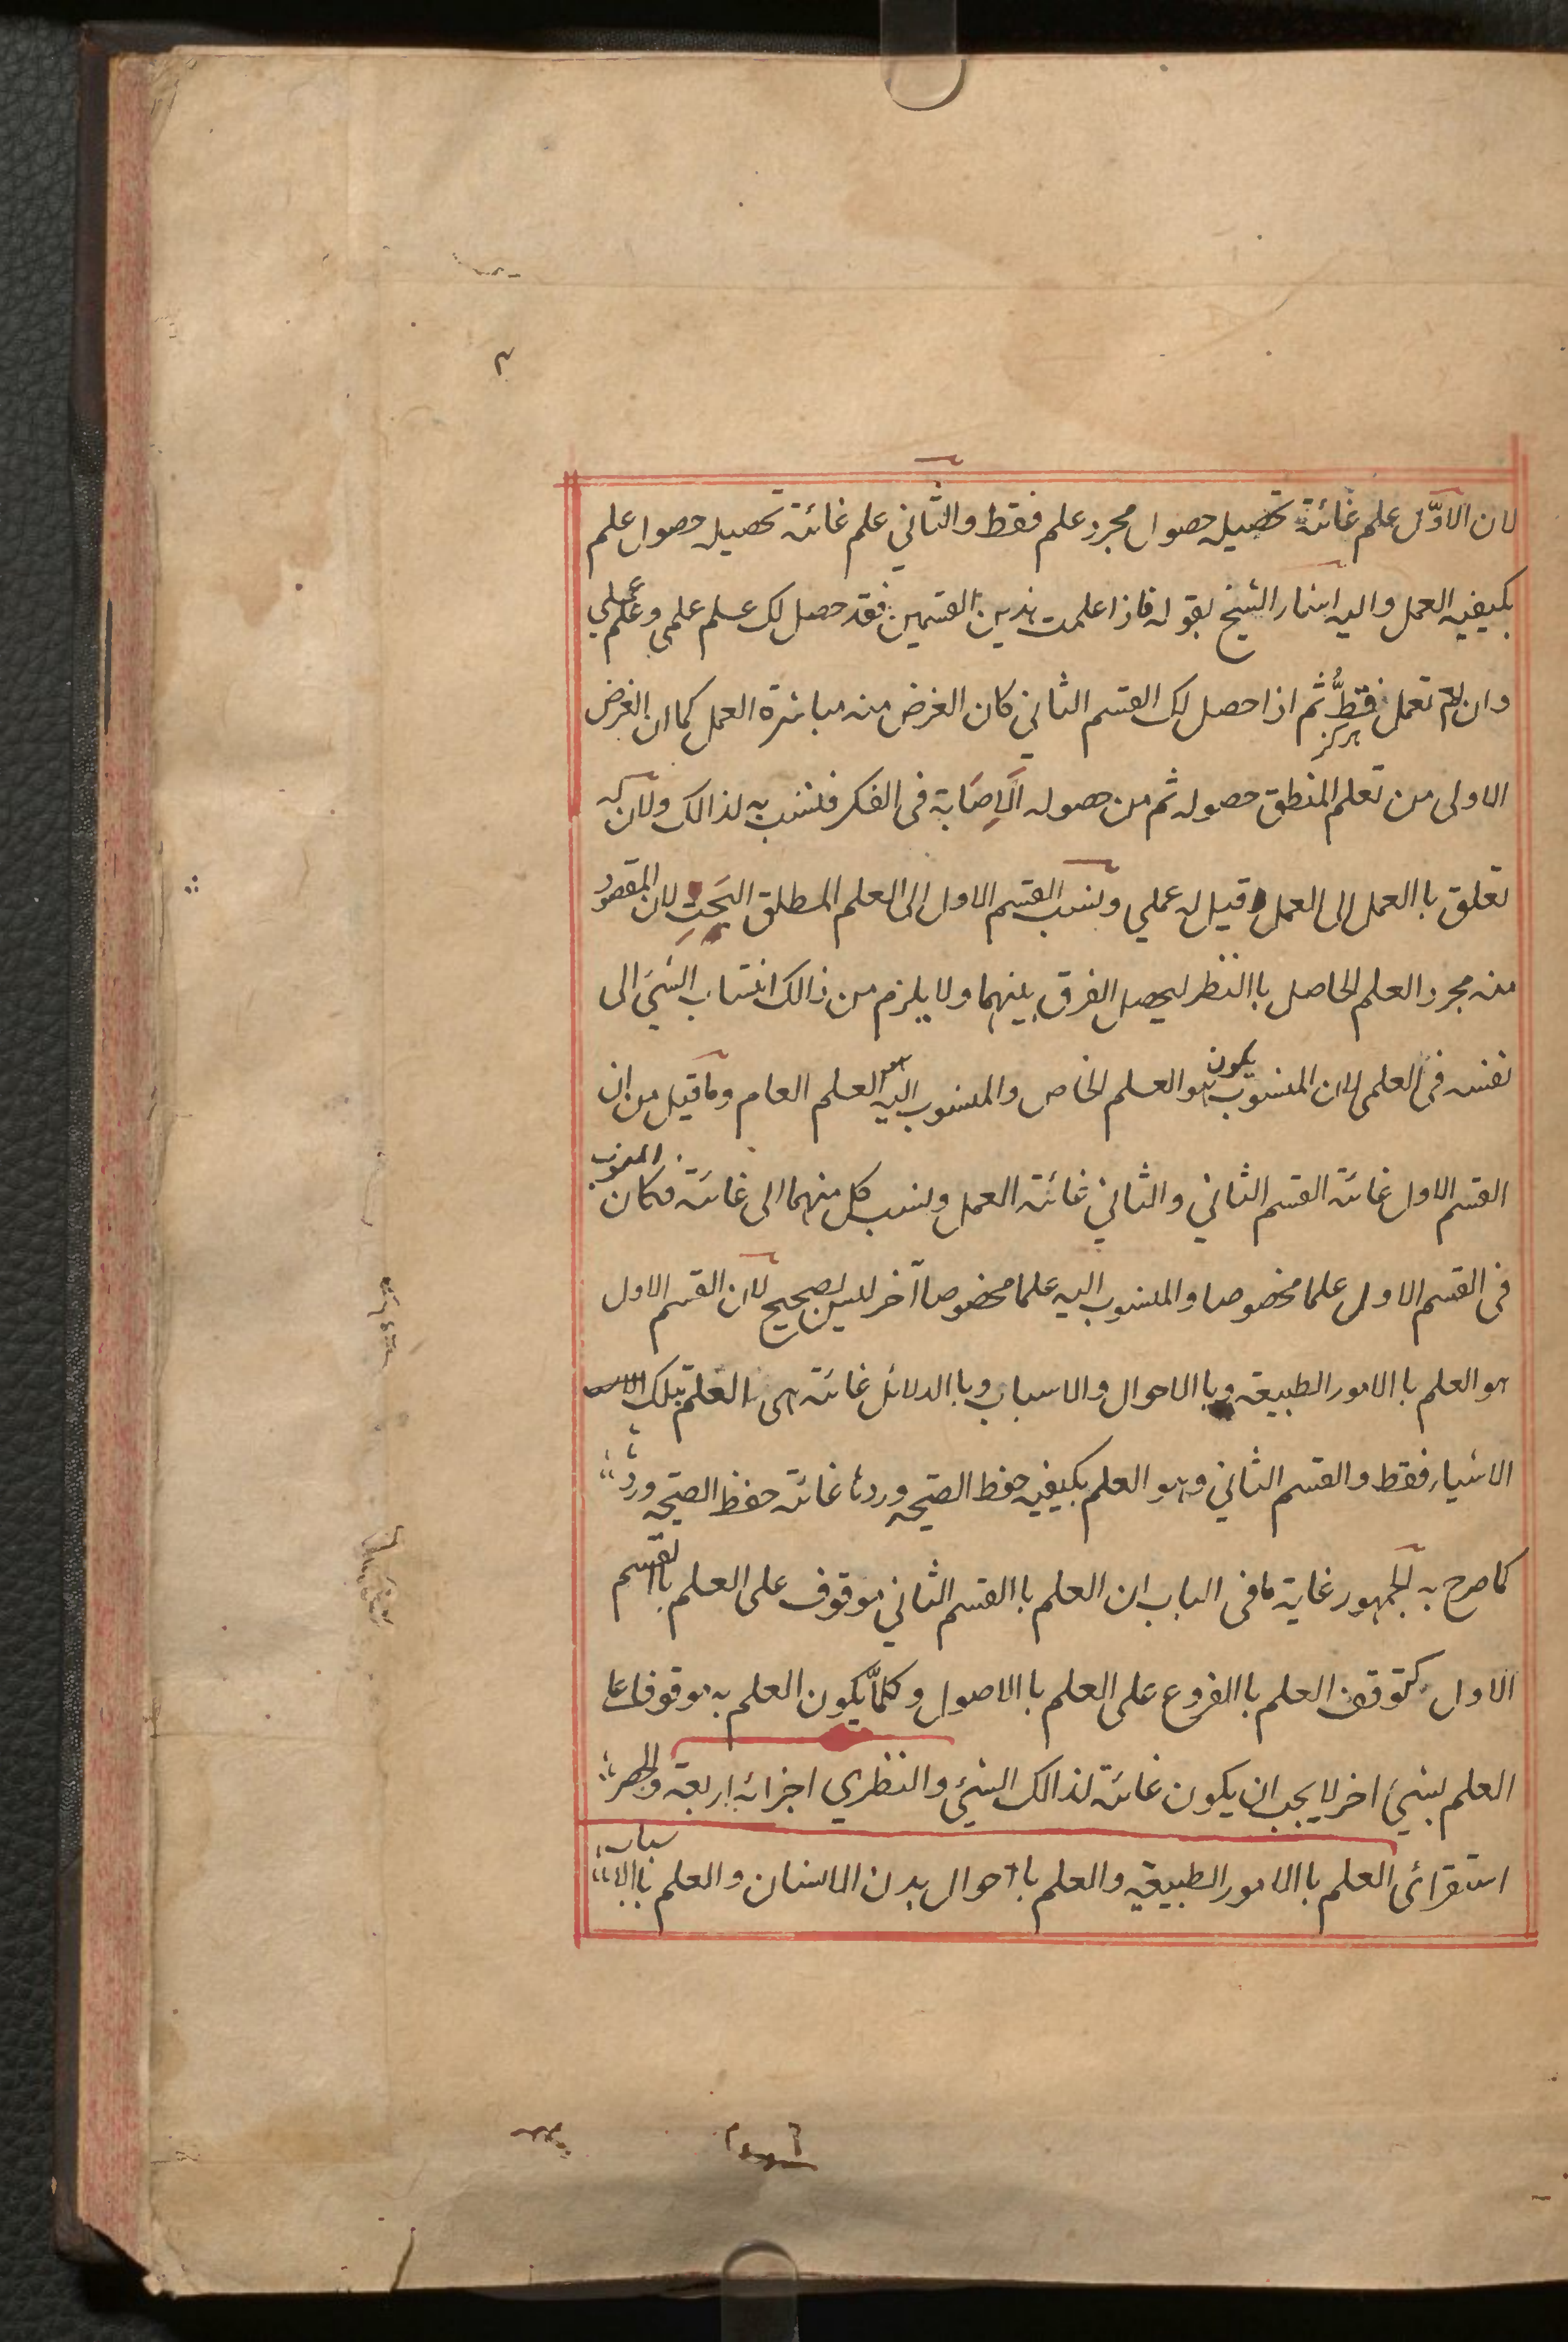 لان الاوّل علم غائتة تحصيله حصول مجرد علم فقط والثاني علم غائتة تحصيله حصول علم
بكيفيه العمل واليه اشار الشيخ بقوله فاذا علمت هذين القسمين فقد حصل لك علم علمي وعلم عملي
وان لم تعمل قطُّ ثم اذا حصل لك القسم الثاني كان الغرض منه مباشرة العمل كما ان الغرض
هرگز
الاولى من تعلم المنطق حصوله ثم من حصوله الاِصَابة فى الفكر فنسب به لذالك ولان له
تعلق باالعمل الى العمل وقيل له عملي ونسب القسم الاول الى العلم المطلق البَحتِ لان المقصود
منه مجرد العلم الحاصل باالنظر ليحصل الفرق بينهما ولا يلزم من ذالك انتساب الشيَ الى
نفسه فى العلمى لان المنسوب يكون هو العلم الخاص والمنسوب اليه العلم العام وما قيل من ان
القسم الاول غائته القسم الثاني والثاني غائتة العمل ونسب كل منهما الى غائتة فكان المنسوب
فى القسم الاول علما مخصوصا والمنسوب اليه علما مخصوصا آخر ليس بصحيح لان القسم الاول
هو العلم باالامور الطبيعة وباالاحوال والاسباب وباالدلائل غائتة هى العلم بتلك
الاشياء فقط والقسم الثاني وهو العلم بكيفيه حفظ الصحيه وردها غائتة حفظ الصحيه وردها
كما صرح به الجمهور غاية ما فى الباب ان العلم باالقسم الثاني موقوف على العلم باالقسم
الاول كتوقف العلم باالفروع على العلم باالاصول وكلمّا يكون العلم به موقوفا على
العلم بشيَ اخر لا يجب ان يكون غائتة لذالك الشيَ والنظري اجزائه اربعة والحصر
استقرائى العلم باالامور الطبيعيه والعلم باحوال بدن الانسان والعلم باالاسباب